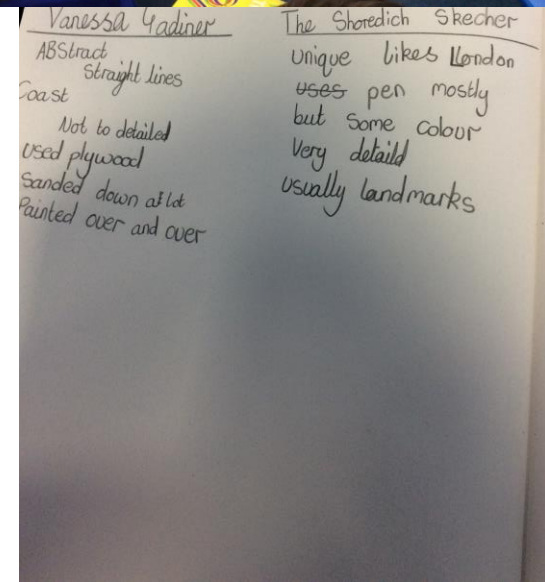 Vanessa Gadiner
ABStract
Straight lines
Coast
Not to detailed
used plywood
Sanded down a lot
Painted over and over
The Shoredich Skecher
unique likes London
uses pen mostly
but Some colour
Very detaild
usually landmarks